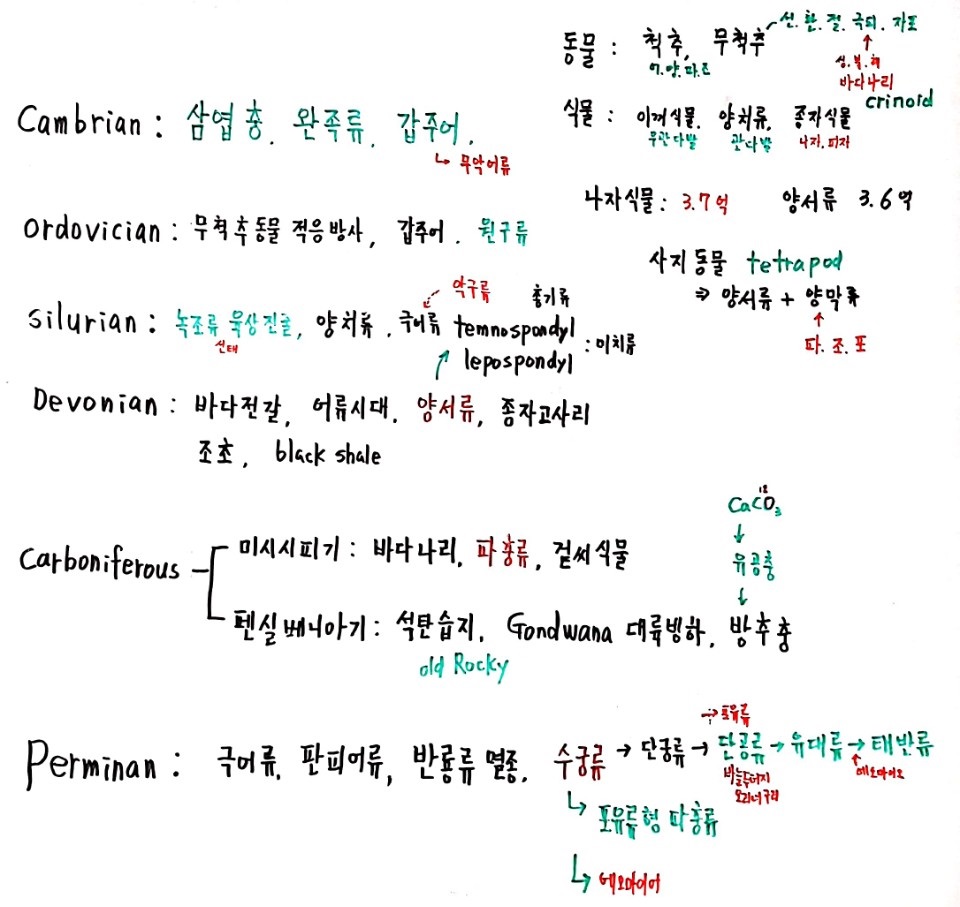 동물 : 척추, 무척추 선.환.절.극피.자포
어.양.파.조
성.불.해
바다나리
crinoid
식물 : 이끼식물. 양치류, 종자식물
무관다발 관다발 나자.피자
Cambrian : 삼엽충. 완족류. 갑주어.
↳ 무악어류
나자식물: 3.7억 양서류 3.6억
Ordovician : 무척추동물 적응방사, 갑주어. 원구류
사지동물 tetrapod
⇒ 양서류 + 양막류
파.조.포
악구류 총기류
Silurian : 녹조류 육상진출, 양치류. 극어류 temnospondyl
선태
lepospondyl : 미치류
Devonian : 바다전갈, 어류시대. 양서류, 종자고사리
조초, black shale
CaCO₃
12
↓
유공충
↓
Carboniferous
미시시피기 : 바다나리, 파충류, 겉씨식물
펜실베니아기 : 석탄습지, Gondwana 대륙빙하, 방추충
old Rocky
→ 포유류
Perminan : 극어류, 판피어류, 반룡류 멸종. 수궁류 → 단궁류 → 단공류 → 유대류 → 태반류
바늘두더지
오리너구리
에오마이아
↳ 포유류형 파충류
↳ 에오마이어